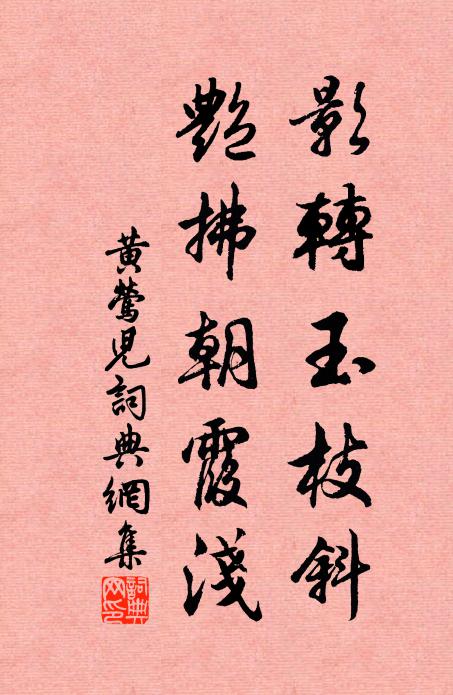 影轉玉枝斜
艷拂朝霞淺
黃鶯兒詞典網集
詞典網印